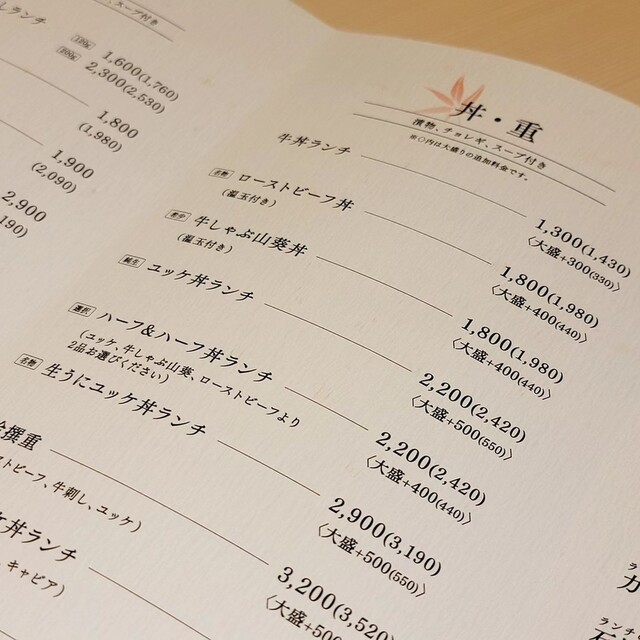 スープ付き
ランチ
120g 1,600(1,760)
200g 2,300(2,530)
1,800
(1,980)
1,900
(2,090)
2,900
190)
丼・重
漬物、チョレギ、スープ付き
※〈〉内は大盛りの追加料金です。
牛丼ランチ 1,300(1,430)
〈大盛+300(330)〉
名物 ローストビーフ丼 1,800(1,980)
(温玉付き) 〈大盛+400(440)〉
牛しゃぶ山葵丼 1,800(1,980)
(温玉付き) 〈大盛+400(440)〉
ユッケ丼ランチ 2,200(2,420)
〈大盛+500(550)〉
選択 ハーフ&ハーフ丼ランチ 2,200(2,420)
(ユッケ、牛しゃぶ山葵、ローストビーフより 〈大盛+400(440)〉
2品お選びください)
名物 生うにユッケ丼ランチ 2,900(3,190)
〈大盛+500(550)〉
撰重 3,200(3,520)
ストビーフ、牛刺し、ユッケ) 〈大盛+500
丼ランチ
、キャビア)
ランチ